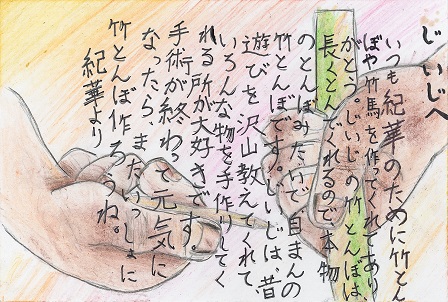 じいじへ
いつも紀華のために竹とん
ぼや竹馬を作ってくれてあり
がとう。じいじの竹とんぼは
長くとんでくれるので、本物
のとんぼみたいで自まんの
竹とんぼです。じいじは、昔
遊びを沢山教えてくれて、
いろんな物を手作りしてく
れる所が大好きです。
手術が終わって元気に
なったら、またいっしょに
竹とんぼ作ろうね。
紀華より